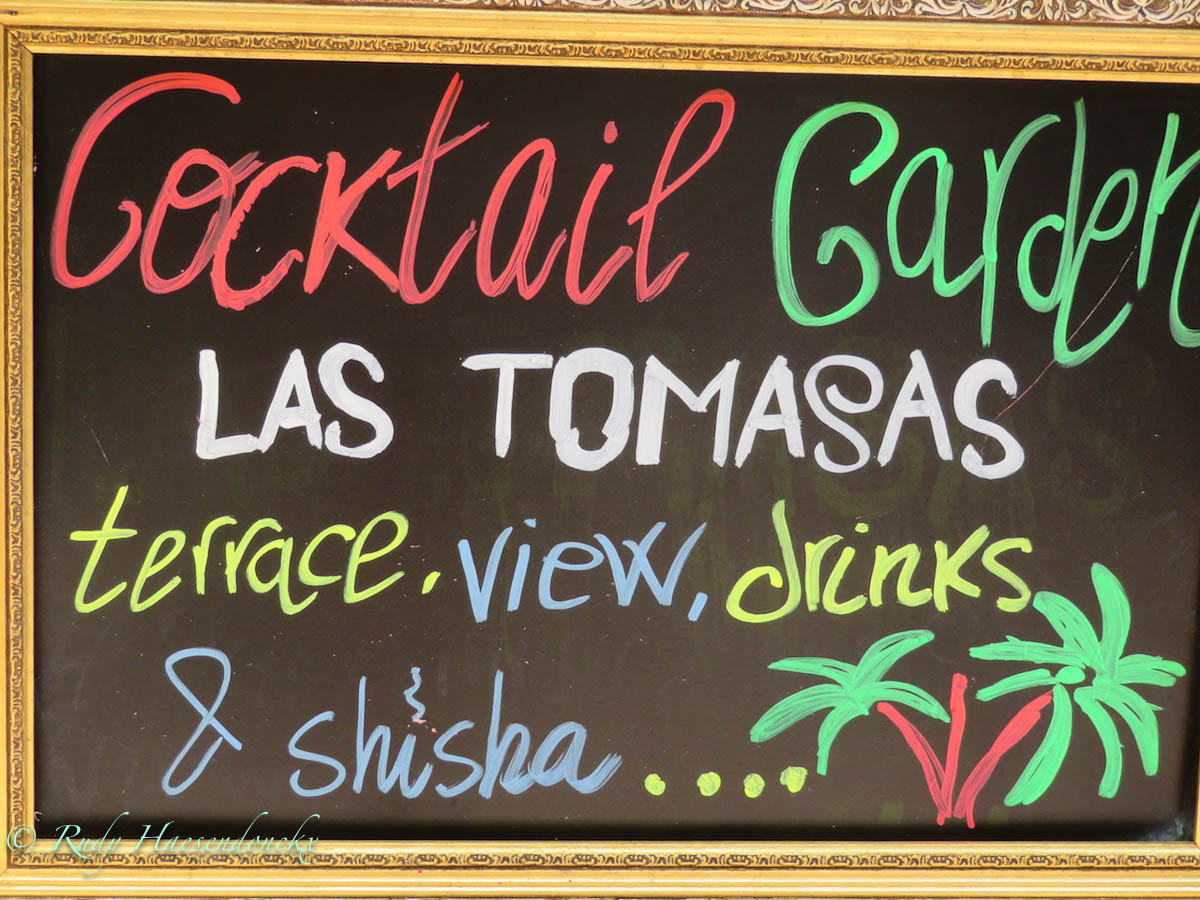 Cocktail Garden
LAS TOMASAS
terrace. view, drinks
& shisha ....
© Rudy Haesendonckx